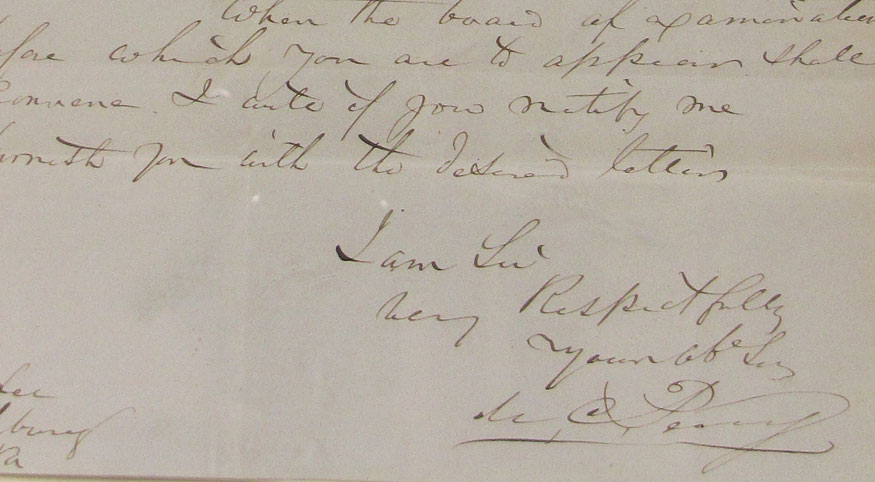 When the board of examination
fore which you are to appear shall
convene. I will if you notify me
urnish you with the desired letters
I am Sir
Very Respectfully
Your obt Sev
M C Perry
lee
burg
Va